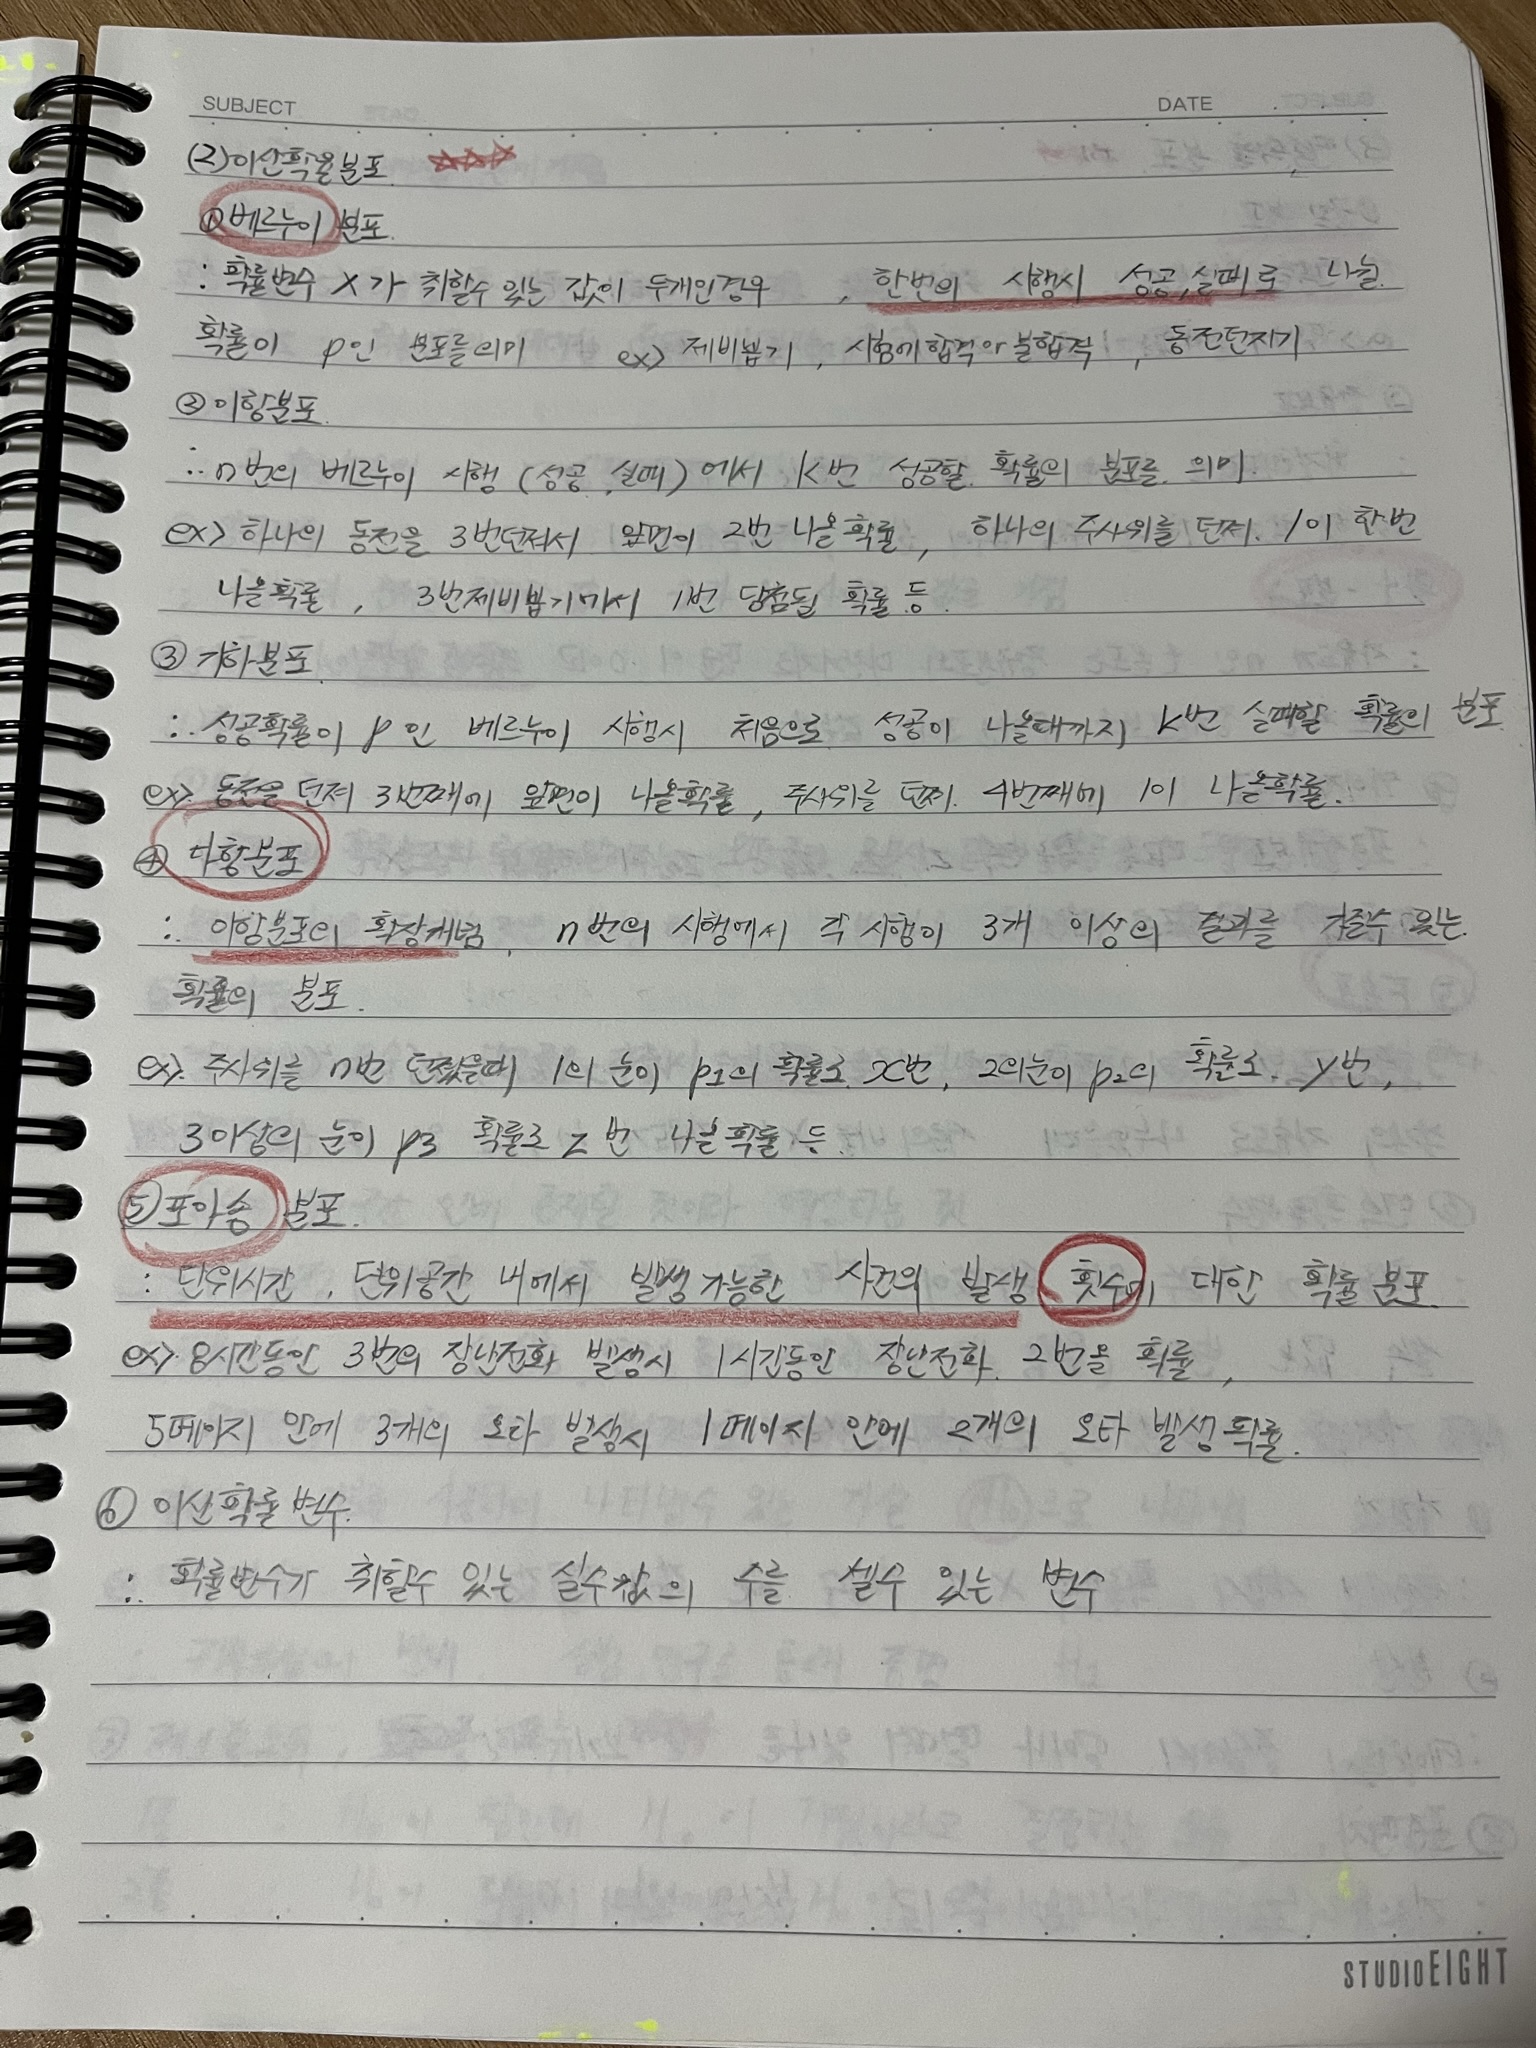 SUBJECT DATE
(2) 이산확률분포
① 베르누이 분포.
: 확률변수 X가 취할수 있는 값이 두개인경우 , 한번의 시행시 성공,실패로 나뉠
확률이 p인 분포를의미 ex> 제비뽑기 , 시험에합격아불합격 , 동전던지기
② 이항분포.
: n번의 베르누이 시행 (성공, 실패)에서 k번 성공할 확률의 분포를 의미.
ex> 하나의 동전을 3번던져서 앞면이 2번 나올확률, 하나의 주사위를 던져. 1이 한번
나올확률 , 3번제비뽑기에서 1번 당첨될 확률 등
③ 기하분포
: 성공확률이 p인 베르누이 시행시 처음으로 성공이 나올때까지 k번 실패할 확률의 분포
ex> 동전을 던져 3번째에 앞면이 나올확률, 주사위를 던져. 4번째에 1이 나올확률.
④ 다항분포
: 이항분포의 확장개념, n번의 시행에서 각 시행이 3개 이상의 결과를 가질수 있는
확률의 분포.
ex> 주사위를 n번 던졌을때 1의 눈이 p1의 확률로 x번, 2의눈이 p2의 확률로 y번,
3이상의 눈이 p3 확률로 z번 나올확률 등
⑤ 포아송 분포.
: 단위시간, 단위공간 내에서 발생가능한 사건의 발생 횟수에 대한 확률분포.
ex> 8시간동안 3번의 장난전화 발생시 1시간동안 장난전화 2번올 확률,
5페이지 안에 3개의 오타 발생시 1페이지 안에 2개의 오타 발생확률.
⑥ 이산확률변수.
: 확률변수가 취할수 있는 실수값의 수를 셀수 있는 변수
STUDIOEIGHT